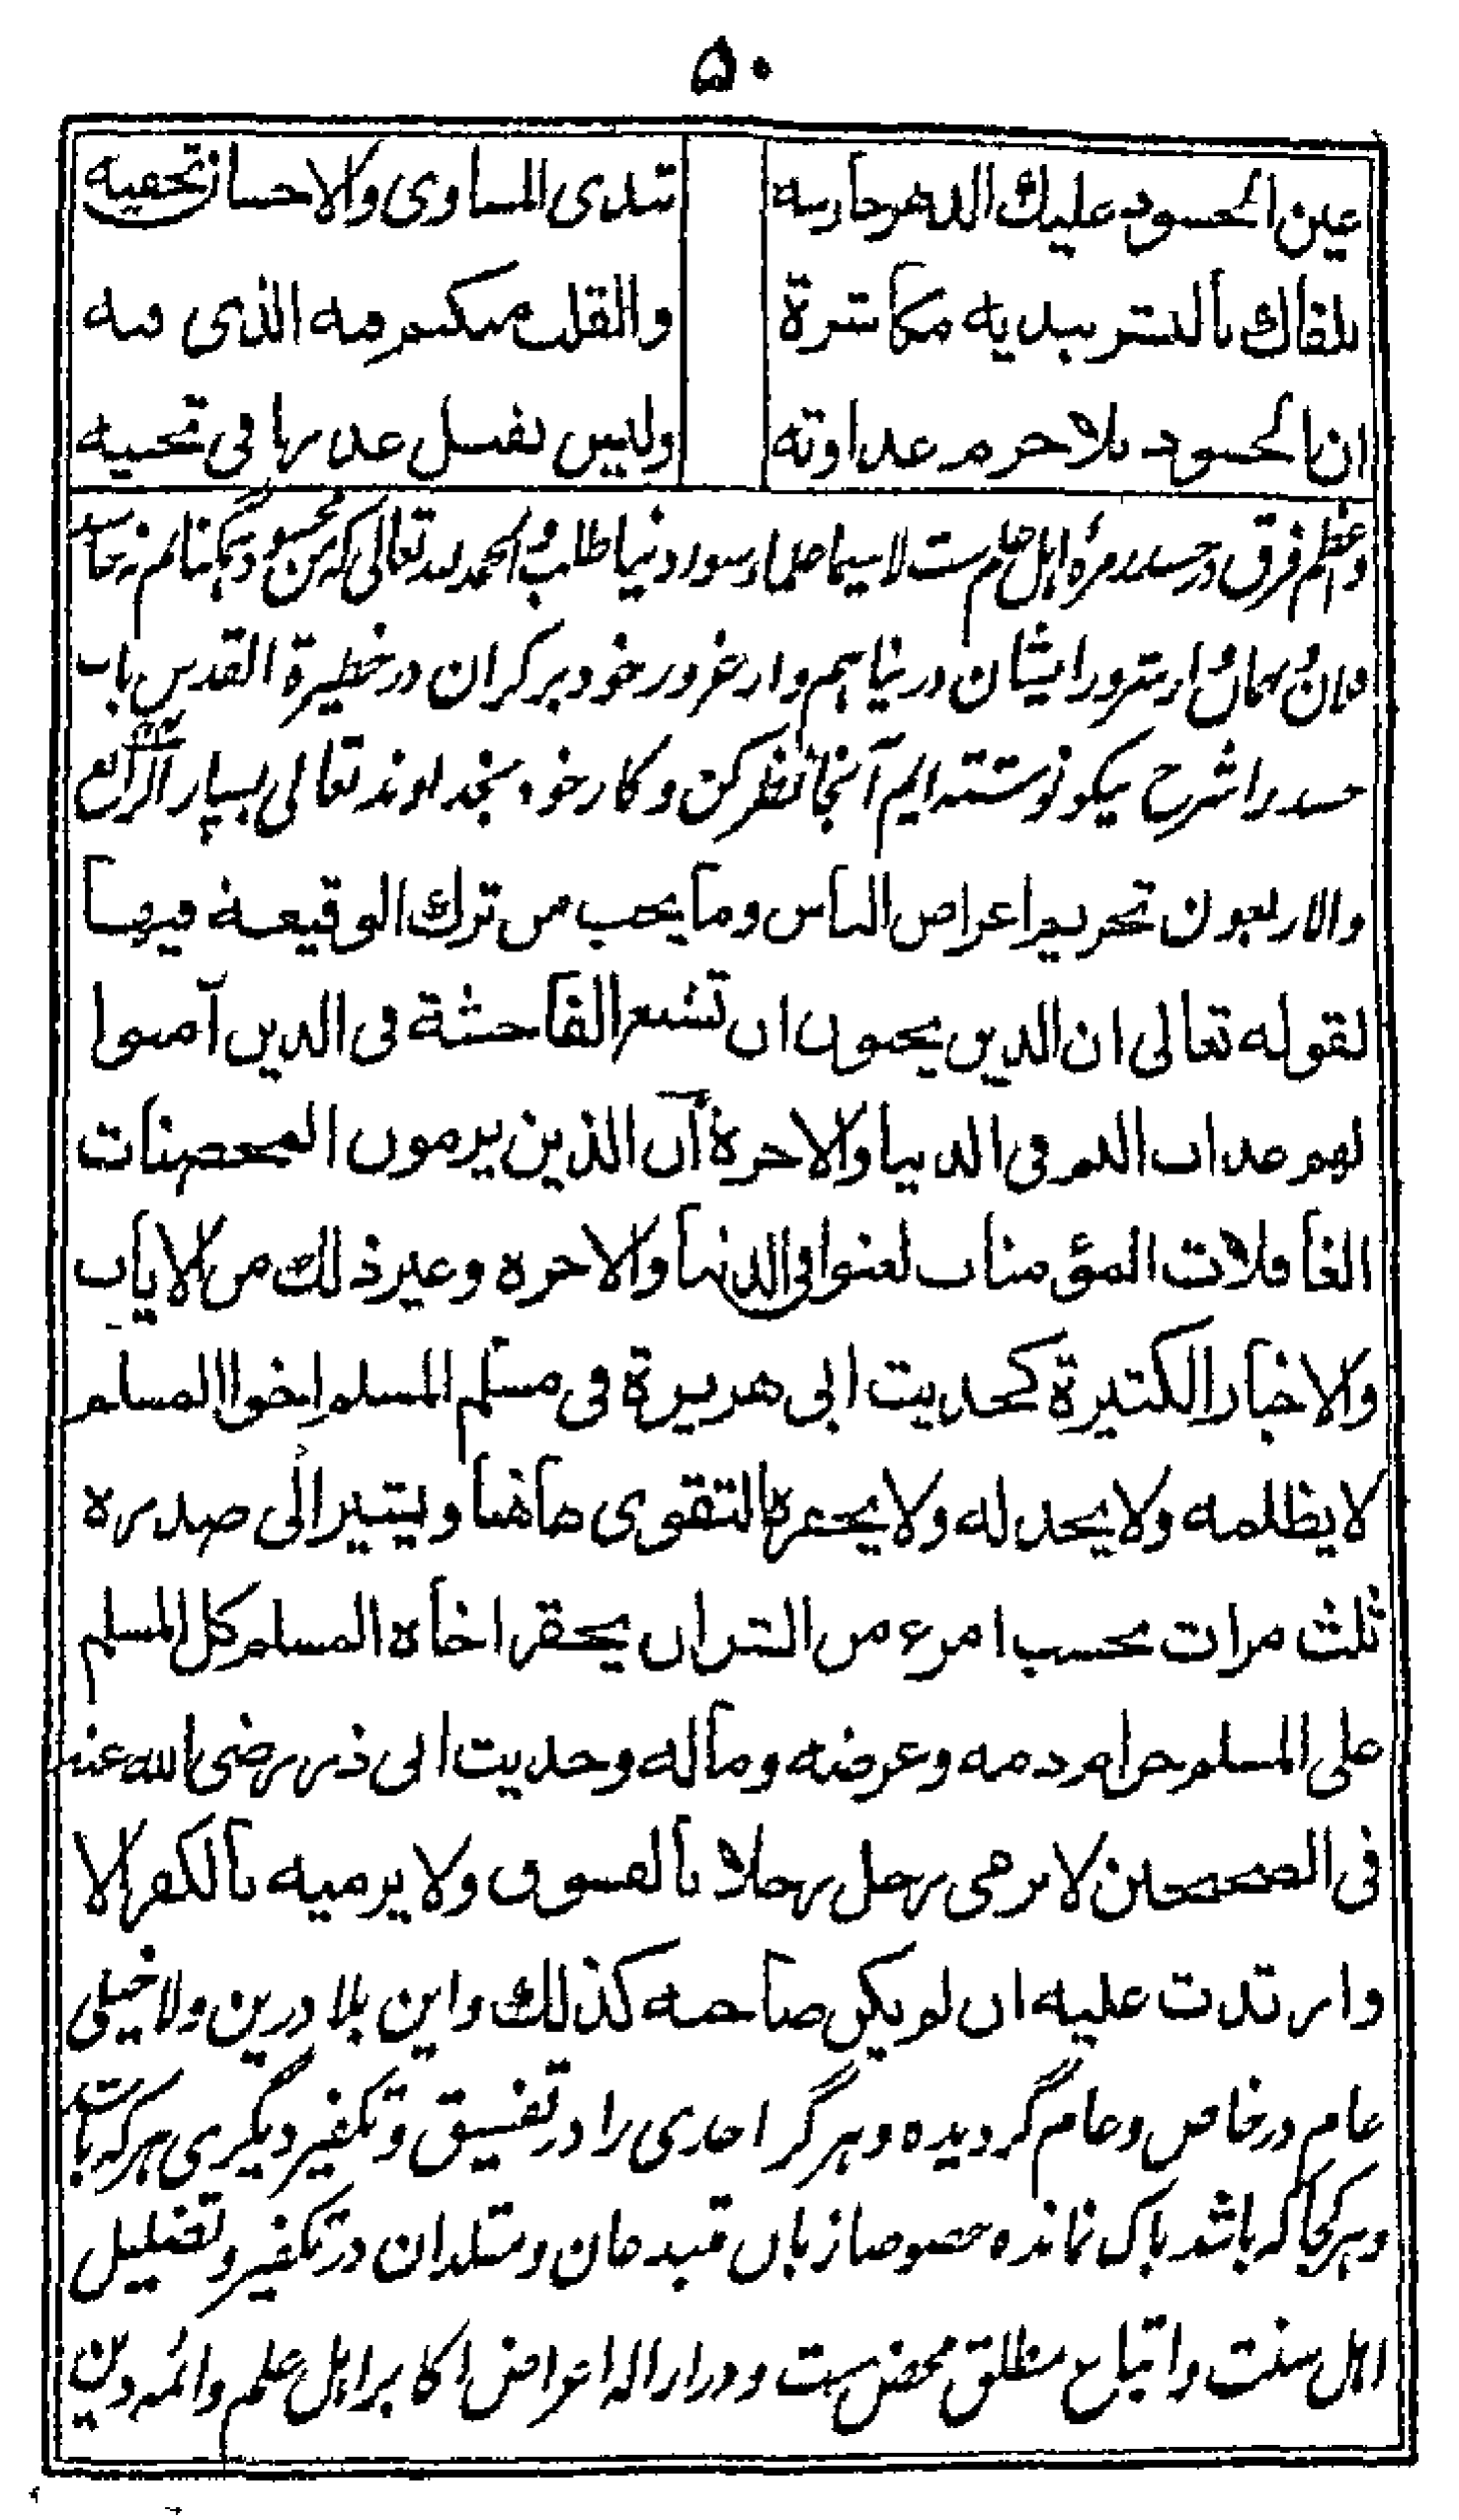 ۵۰
عین الحسود علیك الدهر حارسه تبدی المساوی والاحسان تخفیه
یلقاك بالبشر یبدیه مکاشرة والقلب منکتم فیه الذی فیه
ان الحسود بلا جرم عداوته ولیس یقبل عذرا فی تجنیه
واعظم فرق در حسد زمرۀ اهل علم ست لاسیما علما رسو و دنیا طلب و الحمد لله تعالی که من محسود جهانم نه حاسد
فلان و بهمان از شرور ایشان در پناهم و از غرور خود بر کران در خطیرة القدس باب
حسد را شرح نیکو نوشته ایم آنجا نظر کن و کار خود بخداوند تعالی بسپار الرابع
والاربعون تحریم اعراض الناس وما یجب من ترك الوقیعة فیها
لقوله تعالی ان الذین یحبون ان تشیع الفاحشة فی الذین آمنوا
لهم عذاب الیم فی الدنیا والاخرة ان الذین یرمون المحصنات
الغافلات المؤمنات لعنوا فی الدنیا والاخرة وغیر ذلك من الایات
والاخبار الکثیرة کحدیث ابی هریرة فی مسلم المسلم اخوا المسلم
لا یظلمه ولا یخذله ولا یحقره التقوی هاهنا ویشیر الی صدره
ثلث مرات بحسب امرء من الشر ان یحقر اخاه المسلم کل المسلم
علی المسلم حرام دمه وعرضه وماله وحدیث ابی ذر رضی الله عنه
فی الصحیحین لا یرمی رجل رجلا بالفسوق ولا یرمیه بالکفر الا
وارتدت علیه ان لم یکن صاحبه کذلك واین بلا درین ولا خیلی
عام در خاص و عام گردیده و هرگز احدی را در تفسیق و تکفیر دیگری هر که باشد
و هر کجا که باشد باک نمانده خصوصا زبان مبتدعان و مقلدان در تکفیر و تضلیل
اهل سنت و اتباع مطلق محض ست و در ازاله اعراض اکابر اهل علم و ائمه دین